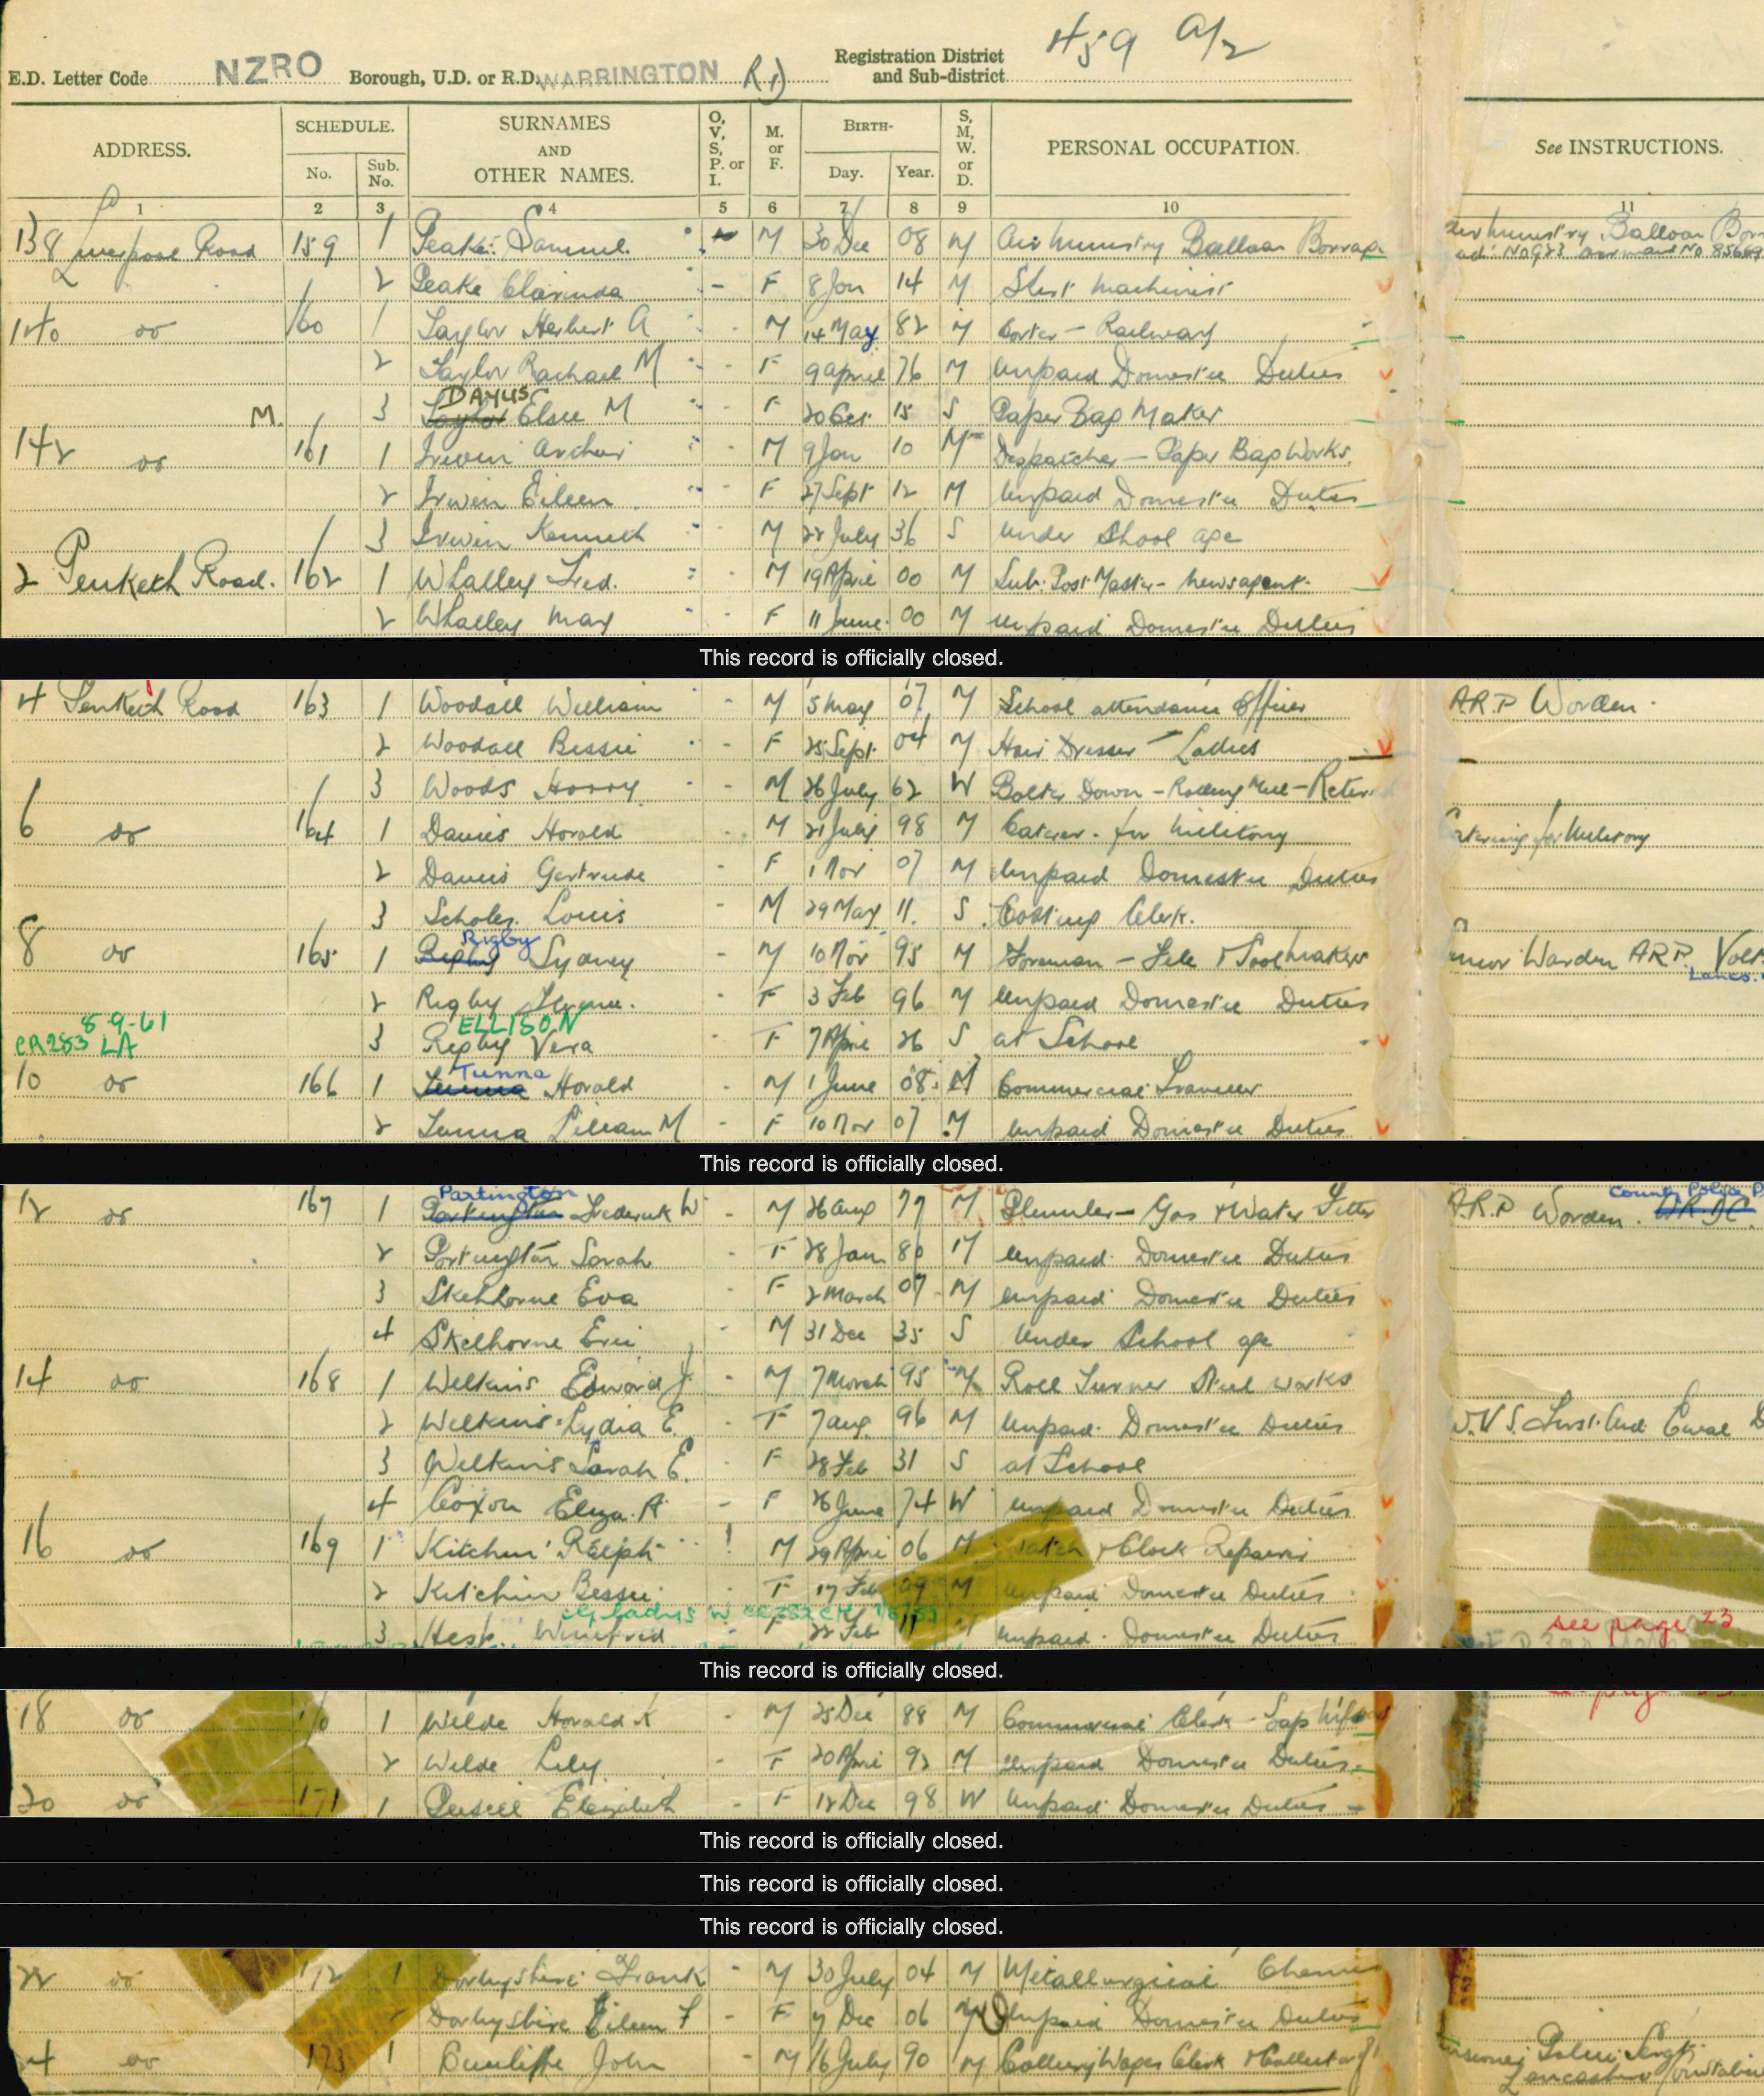 459 A/2
E.D. Letter Code NZRO Borough, U.D. or R.D. WARRINGTON R.D Registration District and Sub-district
ADDRESS. SCHEDULE. No. Sub. No. SURNAMES AND OTHER NAMES. O, V, S, P. or I. M. or F. BIRTH- Day. Year. S, M, W. or D. PERSONAL OCCUPATION. See INSTRUCTIONS.
1 2 3 4 5 6 7 8 9 10 11
138 Liverpool Road 159 1 Peake Samuel M 30 Dec 08 M Air Ministry Balloon Barrage Air Ministry Balloon
2 Peake Clarinda - F 8 Jan 14 M Shirt Machinist
140 do 160 1 Taylor Herbert A - M 14 May 82 M Porter - Railway
2 Taylor Rachael M - F 9 April 76 M Unpaid Domestic Duties
DAVIS
M. 3 Taylor Elsie M - F 20 Oct 15 S Paper Bag Maker
142 do 161 1 Irwin Arthur - M 9 Jan 10 M Despatcher - Paper Bag Works.
2 Irwin Eileen - F 27 Sept 12 M Unpaid Domestic Duties
3 Irwin Kenneth M 22 July 36 S Under School age
2 Penketh Road. 162 1 Whalley Fred. - M 19 April 00 M Sub. Post Master - Newsagent
2 Whalley May - F 11 June 00 M Unpaid Domestic Duties
This record is officially closed.
4 Penketh Road 163 1 Woodall William - M 5 May 07 M School attendance Officer A.R.P Warden.
2 Woodall Bessie - F 25 Sept 04 M Hair Dresser - Ladies
3 Woods Harry - M 26 July 62 W Down - Rolling Mill - Retired
6 do 164 1 Davies Harold M 21 July 98 M Caterer - for Military Catering for Military
2 Davies Gertrude - F 1 Nov 07 M Unpaid Domestic Duties
3 Scholes Louis - M 29 May 11. S Costing Clerk.
Rigby
8 do 165 1 Rigby Sydney - M 10 Nov 95 M Foreman - File & Toolmakers Senior Warden A.R.P.
Lancs.
2 Rigby - F 3 Feb 96 M Unpaid Domestic Duties
8-9-61 ELLISON
CR283 LA 3 Rigby Vera - F 7 April 26 S at School
Tunna
10 do 166 1 Tunna Harold - M 1 June 08 M Commercial Traveller
2 Tunna Lilian M - F 10 Nov 07 M Unpaid Domestic Duties
This record is officially closed.
Partington County Police
12 do 167 1 Partington Frederick W - M 26 Aug 77 M Plumber - Gas & Water Fitter A.R.P Warden.
2 Partington Sarah - F 28 Jan 80 M Unpaid Domestic Duties
3 Skelhorne Eva - F 2 March 07 M Unpaid Domestic Duties
4 Skelhorne Eric - M 31 Dec 35 S Under School age
14 do 168 1 Welkins Edward J - M 7 March 95 M Roll Turner Steel works
2 Welkins Lydia E. - F 7 Aug 96 M Unpaid Domestic Duties W.V.S. First Aid
3 Welkins Sarah E. - F 28 Feb 31 S at School
4 Coxon Eliza A - F 26 June 74 W Unpaid Domestic Duties
16 do 169 1 Kitchin Ralph M 29 April 06 M Watch & Clock Repairer
2 Kitchin Bessie - F 17 Feb 09 M Unpaid Domestic Duties
Gladys W
3 Hesk Winifred F 22 Feb 11 Unpaid Domestic Duties see page 23
This record is officially closed.
18 do 170 1 Wilde Harold K - M 25 Dec 88 M Commercial Clerk - Soap
2 Wilde Lily - F 20 April 92 M Unpaid Domestic Duties
20 do 171 1 Elizabeth - F 12 Dec 98 W Unpaid Domestic Duties
This record is officially closed.
This record is officially closed.
This record is officially closed.
22 do 172 1 Darbyshire Frank - M 30 July 04 M Metallurgical Chemist
Darbyshire Eileen F - F 7 Dec 06 M Unpaid Domestic Duties
24 do 173 1 Cunliffe John - M 16 July 90 M Colliery Wages Clerk Police
Lancashire